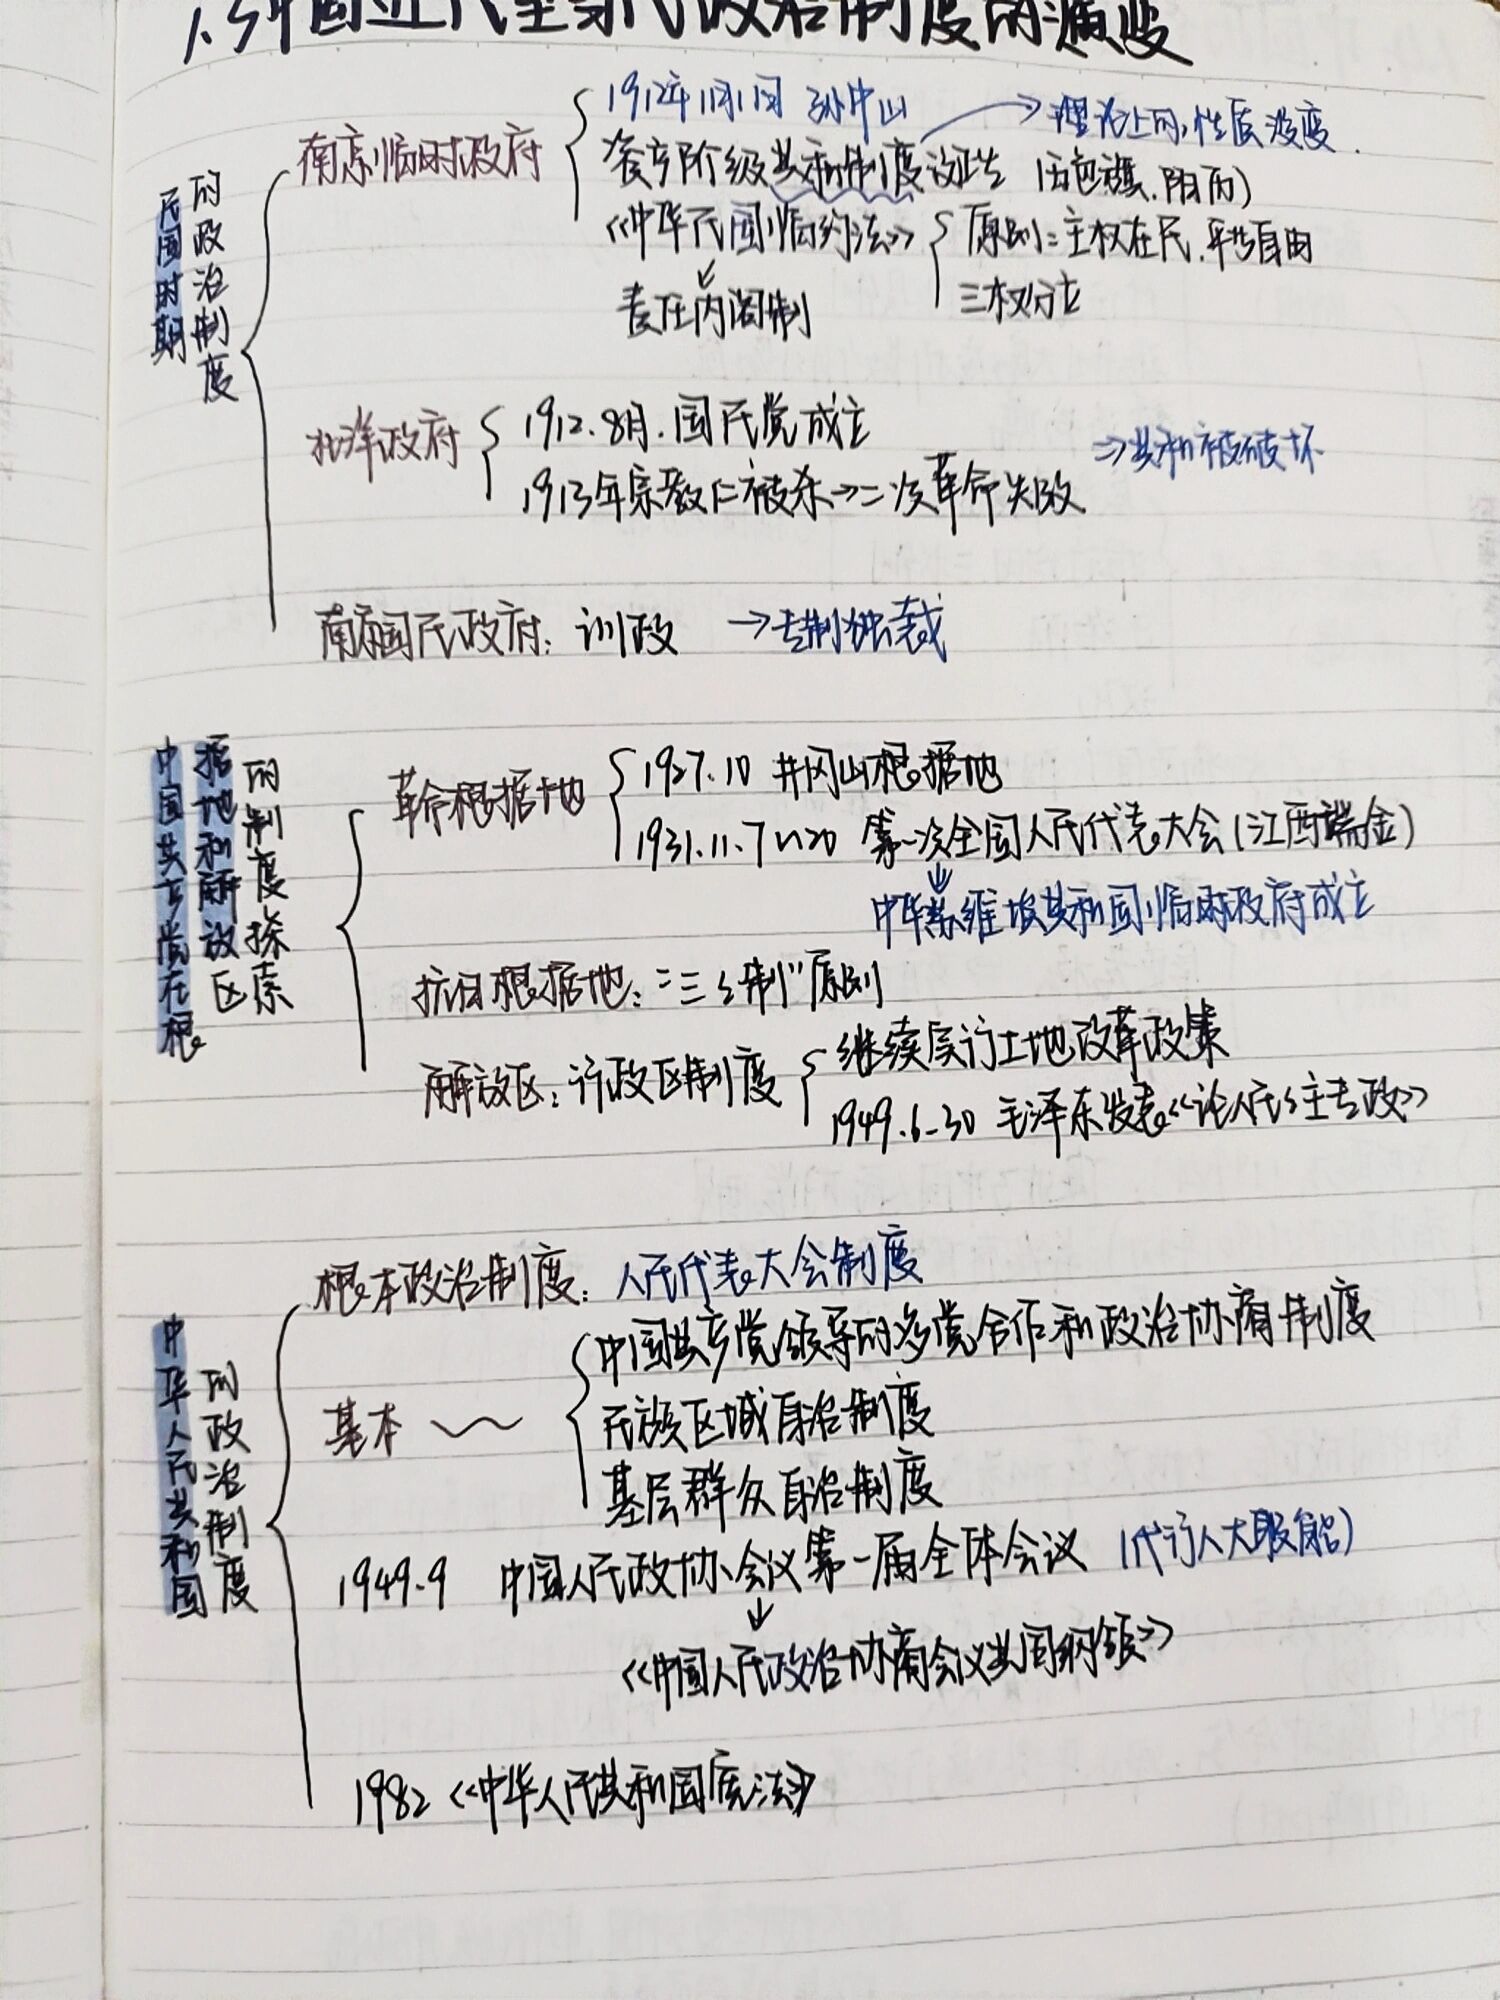 1.3中国近代至当代政治制度的演变
民国时期的政治制度
南京临时政府
1912年1月1日 孙中山
→理论上的,性质没变.
资产阶级共和制度设立 (五色旗.阳历)
《中华民国临时约法》
原则:主权在民.平等自由
三权分立
责任内阁制
北洋政府
1912.8月.国民党成立
1913年宋教仁被杀→二次革命失败
⇒共和被破坏
南京国民政府:训政 →专制独裁
中国共产党在根据地和解放区的制度探索
革命根据地
1927.10 井冈山根据地
1931.11.7~20 第一次全国人民代表大会(江西瑞金)
↓
中华苏维埃共和国临时政府成立
抗日根据地:"三三制"原则
解放区:行政区制度
继续实行土地改革政策
1949.6-30 毛泽东发表《论人民主专政》
中华人民共和国的政治制度
根本政治制度:人民代表大会制度
基本 ～～
中国共产党领导的多党合作和政治协商制度
民族区域自治制度
基层群众自治制度
1949.9 中国人民政协会议第一届全体会议 (代行人大职能)
↓
《中国人民政治协商会议共同纲领》
1982《中华人民共和国宪法》